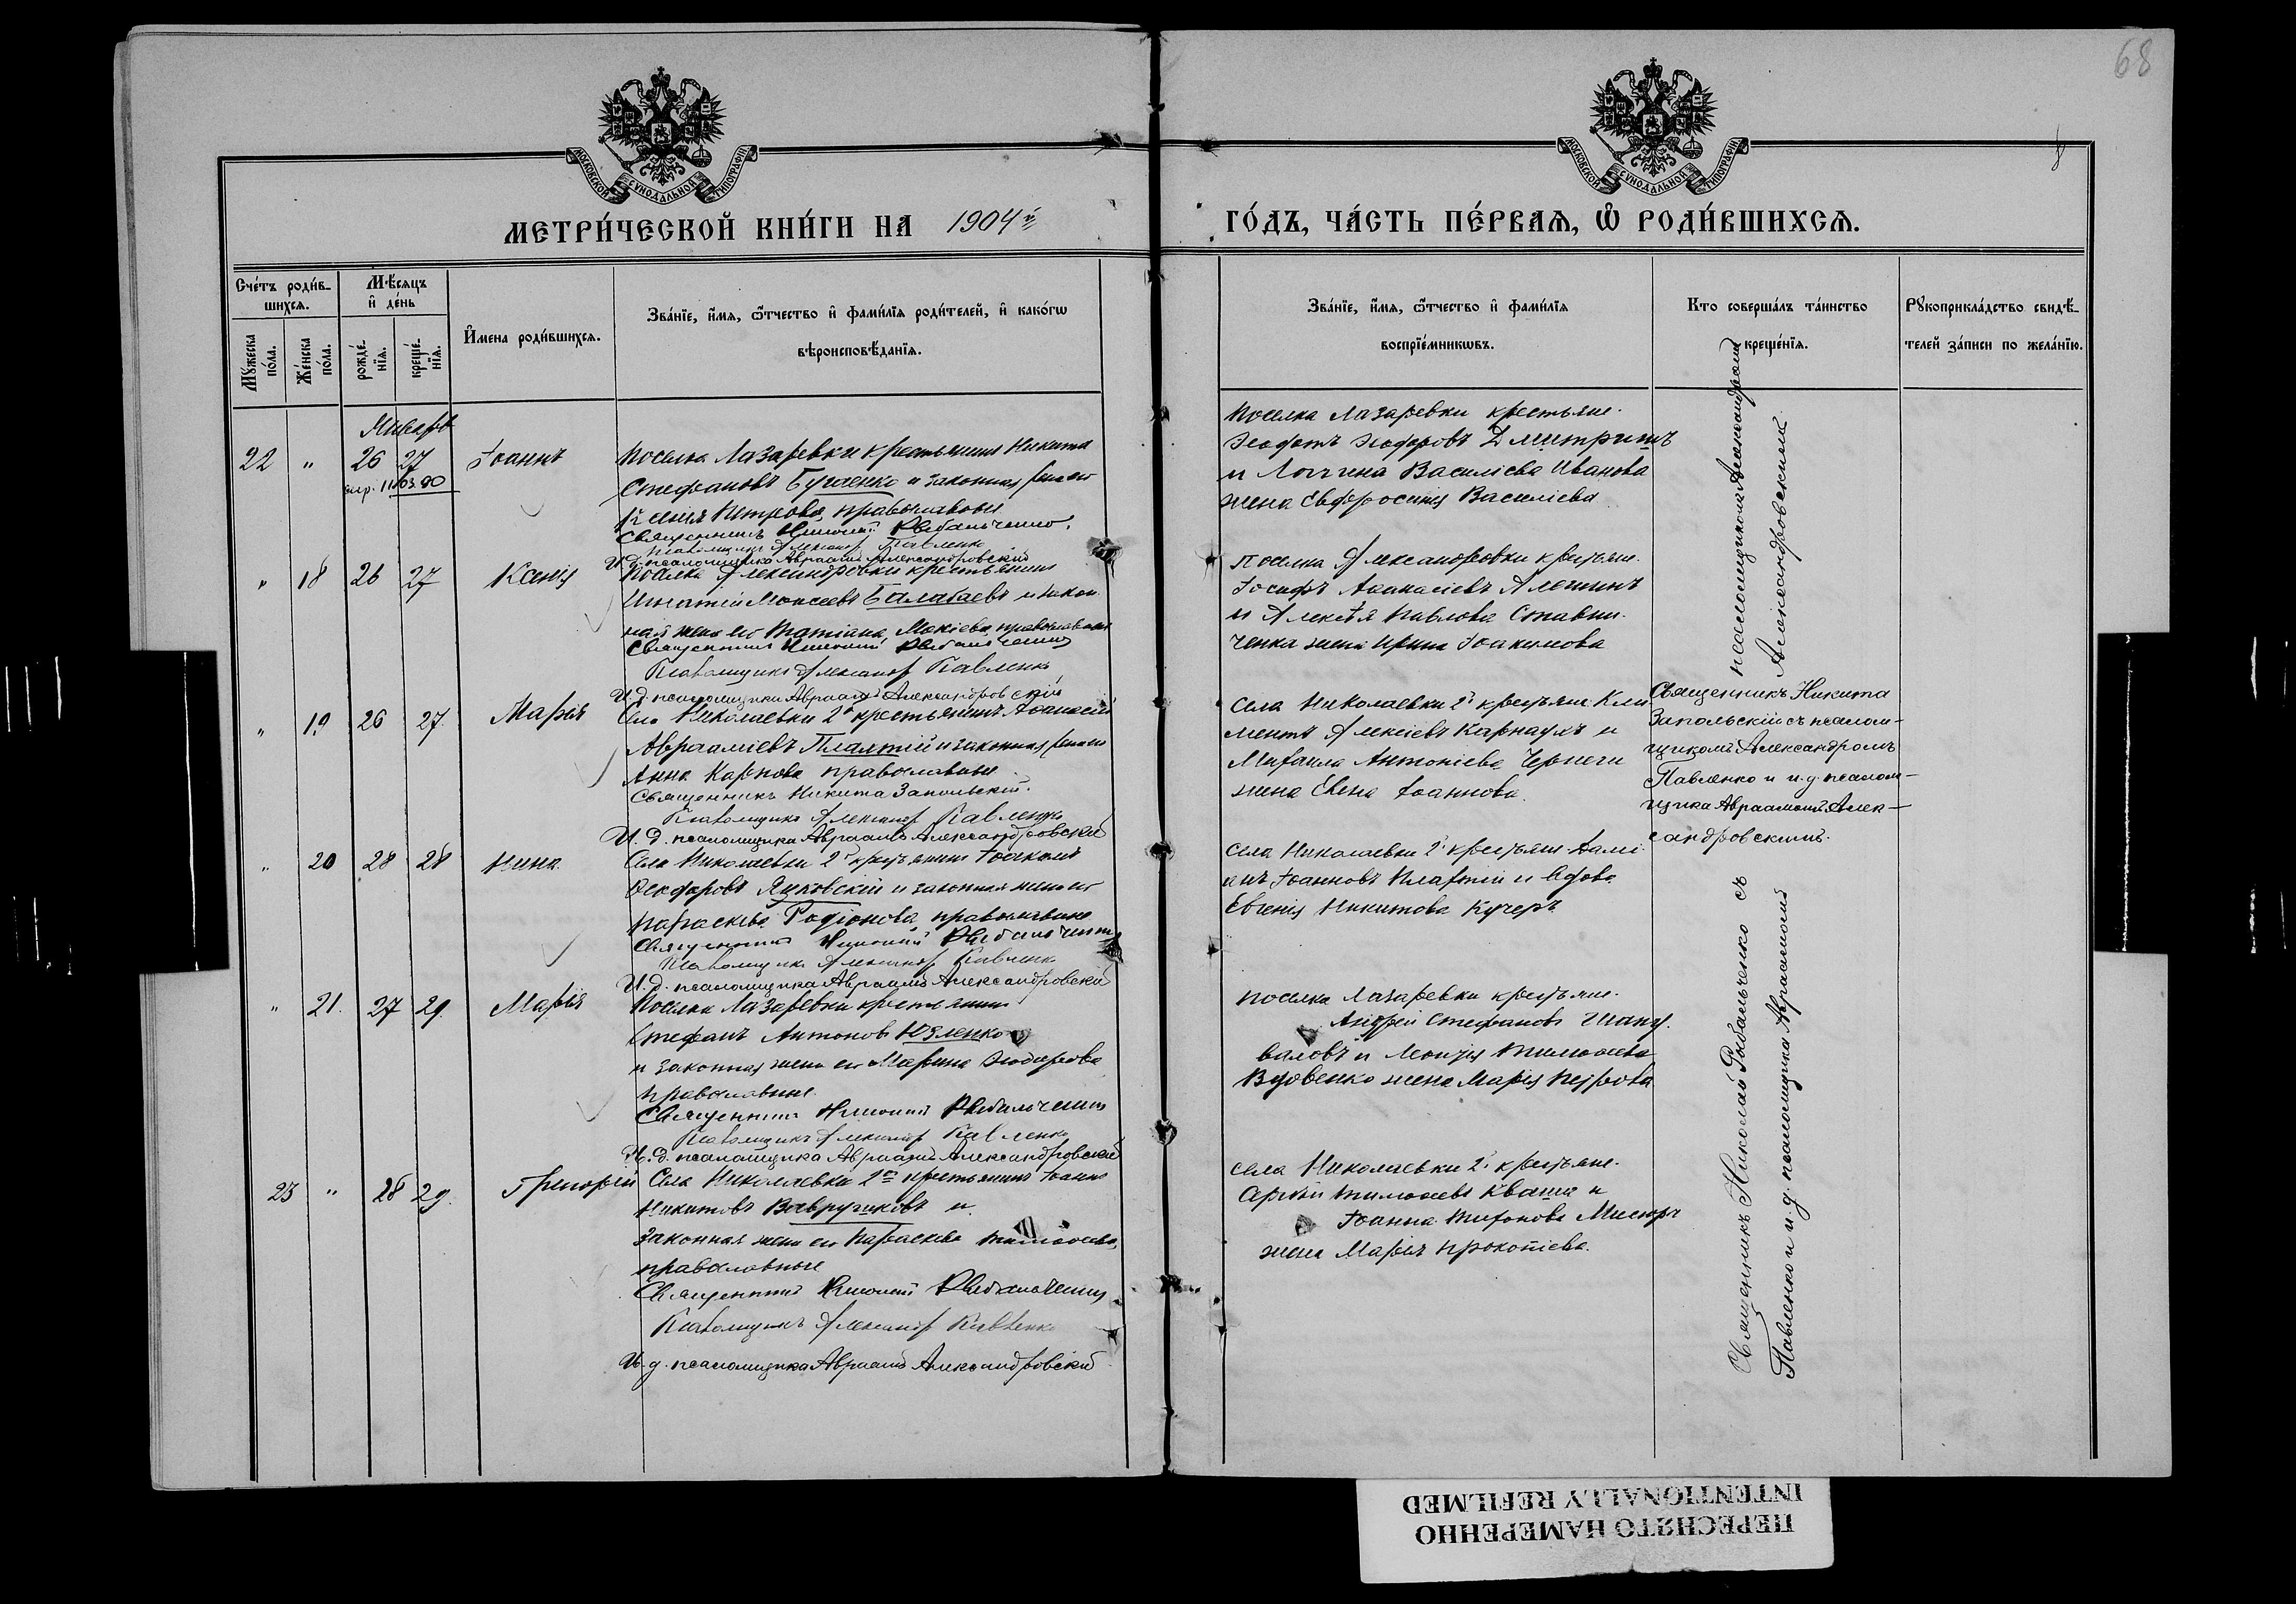 68
8
МОСКОВСКОЙ СѴНОДАЛЬНОЙ ТИПОГРАФІИ
МОСКОВСКОЙ СѴНОДАЛЬНОЙ ТИПОГРАФІИ
МЕТРИ́ЧЕСКОЙ КНИ́ГИ НА 1904й
ГО́ДЪ, ЧА́СТЬ ПЕ́РВАѦ, Ѽ РОДИ́ВШИХСѦ.
Сче́тъ роди́в-
шихсѧ.
Му́жеска по́ла.
Же́нска по́ла.
Мѣ́сяцъ и де́нь
рожде́-нїѧ.
креще́-нїѧ.
И҆мена роди́вшихсѧ.
Зва́нїе, и҆́мѧ, ѻ҆́тчество и҆ фами́лїѧ роди́телей, и҆ како́гѡ
вѣроисповѣ́данїѧ.
Зва́нїе, и҆́мѧ, ѻ҆́тчество и҆ фами́лїѧ
воспрїе́мникѡвъ.
Кто соверша́лъ та́инство
креще́нїѧ.
Рꙋкоприкла́дство свидѣ́-
телей за́писи по жела́нїю.
Январь
22 " 26 27 Іоаннъ
Поселка Лазаревки крестьянинъ Никита
Стефановъ Бугаенко и законная жена его
Ксенія Петрова, православные
Священникъ Николай Рыбальченко.
Псаломщикъ Александр Павленко
И. д. псаломщика Авраамій Александровскій
Поселка Лазаревки крестьяне.
Ѳеодотъ Ѳеодоровъ Дмитришъ
и Логгина Василіева Иванова
жена Евфросинія Василіева
" 18 26 27 Ксенія
Поселка Александровки крестьянинъ
Игнатій Моисеевъ Балабаевъ и закон
ная жена его Татіана Мокіева, православные
Священникъ Николай Рыбальченко
Псаломщикъ Александр Павленко
И. д. псаломщика Авраамій Александровскій
Поселка Александровки крестьяне.
Іосифъ Аѳанасіевъ Алешинъ
и Алексѣя Павлова Ставни-
ченка жена Ирина Іоакимова
" 19 26 27 Марія
Села Николаевки 2й крестьянинъ Аѳанасій
Авраамiевъ Плахтій и законная жена его
Анна Карпова православные
Священникъ Никита Запольскій.
Псаломщикъ Александр Павленко
И. д. псаломщика Авраамій Александровскій
Села Николаевки 2й крестьяне Кли
ментъ Алексіевъ Карнаухъ и
Михаила Антоніева Чернеги
жена Елена Іоаннова.
Священникъ Никита
Запольскій съ псалом-
щикомъ Александромъ
Павленко и и. д. псалом-
щика Авраамомъ Алек-
сандровскимъ.
" 20 28 28 Нина
Села Николаевки 2й крестьянинъ Іоакимъ
Ѳеодоровъ Яцковскій и законная жена его
Параскева Родіонова, православные
Священникъ Николай Рыбальченко
Псаломщикъ Александр Павленко
И. д. псаломщика Авраамій Александровскій
Села Николаевки 2й крестьяне. Дамі
анъ Іоанновъ Плахтій и вдова
Евгенія Никитова Кучеръ
" 21. 27 29. Марія
Поселка Лазаревки крестьянинъ
Стефанъ Антоновъ Юзленко
и законная жена его Марина Ѳеодорова
православные.
Священникъ Николай Рыбальченко
Псаломщикъ Александр Павленко
И. д. псаломщика Авраамій Александровскій
поселка Лазаревки крестьяне.
Андрей Стефановъ Шапо
валовъ и Моисея Тимоѳеева
Вдовенко жена Марія Петрова
23 " 28 29. Григорій
Села Николаевки 2й крестьянинъ Іоаннъ
Никитовъ Вавручиковъ и
законная жена его Параскева Тимоѳеева,
православные
Священникъ Николай Рыбальченко
Псаломщикъ Александр Павленко
И. д. псаломщика Авраамій Александровскій
села Николаевки 2й крестьяне.
Сергѣй Тимоѳеевъ Кваша и
Іоанна Тихонова Мисюра
жена Марія Прокопіева.
Священникъ Николай Рыбальченко съ псаломщикомъ Александромъ
Павленко и и. д. псаломщика Авраамомъ Александровскимъ.
ПЕРЕСНЯТО НАМЕРЕННО
INTENTIONALLY REFILMED